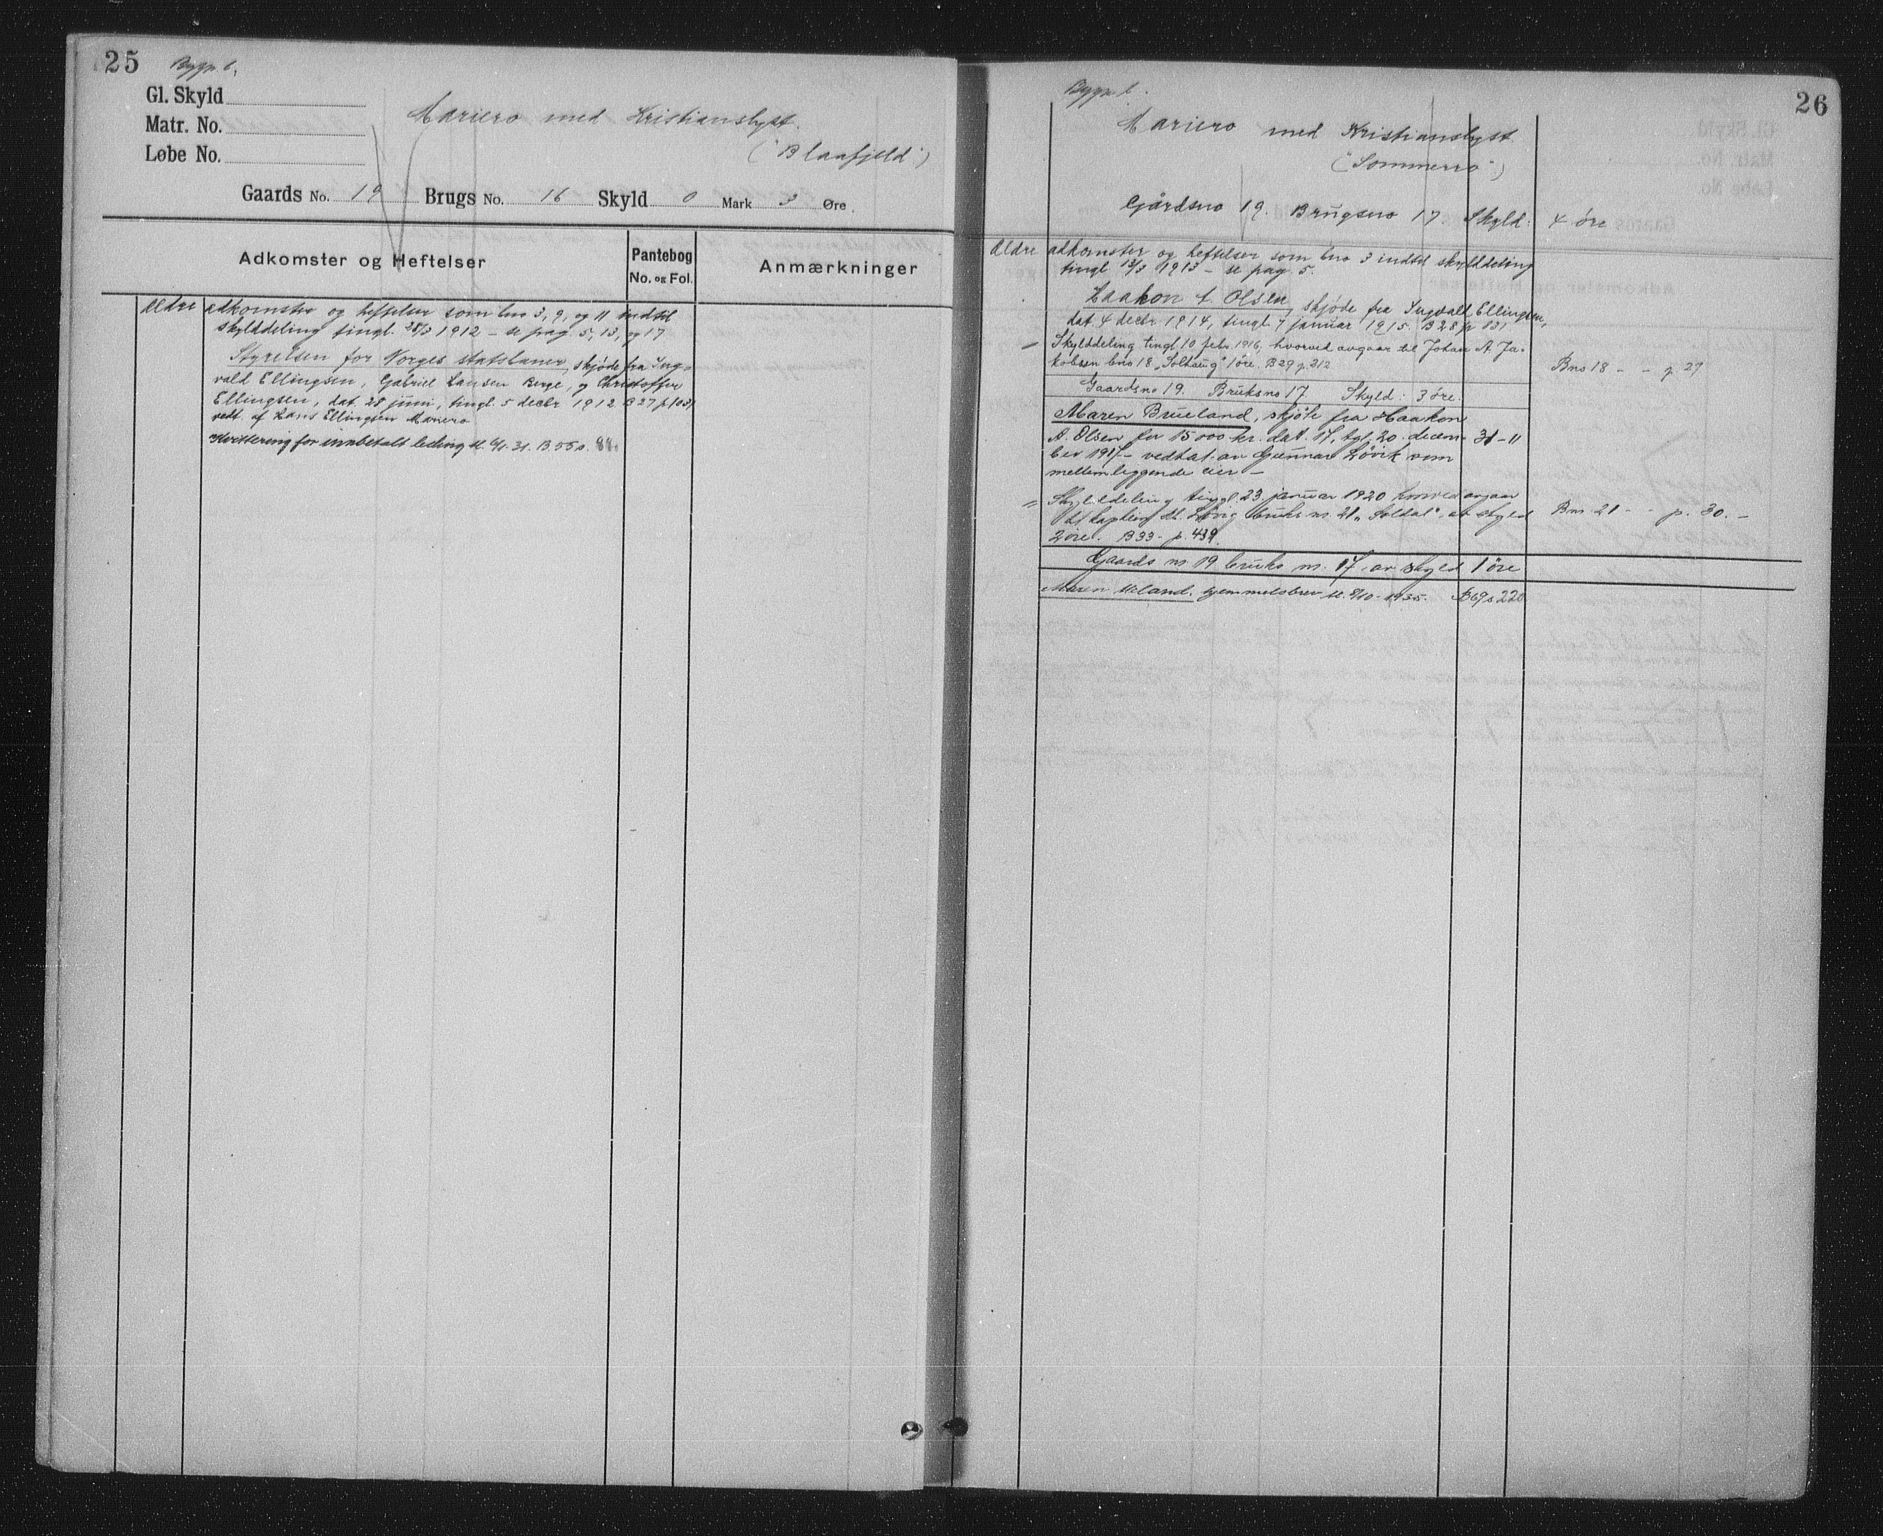 25
Bygn b.
Gl. Skyld
Matr. No.
Løbe No.
Mariero med Kristianslyst.
("Blaafjeld")
Gaards No. 19 Brugs No. 16 Skyld 0 Mark 3 Øre
Adkomster og Heftelser
Pantebog No. og Fol.
Anmærkninger
Ældre adkomster og heftelser som bno 3, 9, og 11 indtil
skylddeling tingl. 28/3 1912 – se pag. 5, 13, og 17
Styrelsen for Norges statsbaner, skjøde fra Ing-
vald Ellingsen, Gabriel Larsen Berge, og Christoffer
Ellingsen, dat 28 juni, tingl. 5 decbr 1912 B 27 p 103
vedt. af Hans Ellingsen Mariero
Kvittering for innbetalt leding 31. B 55 s. 88.
26
Bygn b.
Mariero med Kristianslyst
("Sommerro")
Gårdsno 19. Brugsno 17 Skyld: 4 øre
Ældre adkomster og heftelser som bno 3 indtil skylddeling
tingl 13/3 1913 – se pag. 5.
Haakon A. Olsen, skjøde fra Ingvald Ellingsen,
dat. 4 decbr 1914, tingl. 7 januar 1915. B 28 p 531
– Skylddeling tingl 10 febr. 1916, hvorved avgaar til Johan A. Ja-
kobsen bno 18 „Solhaug" 1 øre. B 29 p. 212
Bno 18 – – p. 29
Gaardsno 19. Bruksno 17 Skyld: 3 øre.
Maren Brueland, skjøte fra Haakon
A. Olsen for 15000 kr. dat. 17, tgl. 20. decem- 31–11
ber 1917 – vedtat av Gunnar Løvik som
mellemliggende eier –
= Skylddeling tingl. 23 januar 1920 hvorved avgaar
til kaptein bruks nr. 21 „Soldal" at skyld
2 øre. B 33 – p. 439.
Bno 21 – – p. 30. –
Gaards nr. 19 bruks nr. 17 av skyld 1 øre
Maren Ueland. hjemmelsbrev 9/10 – 1935. B 69 s 220